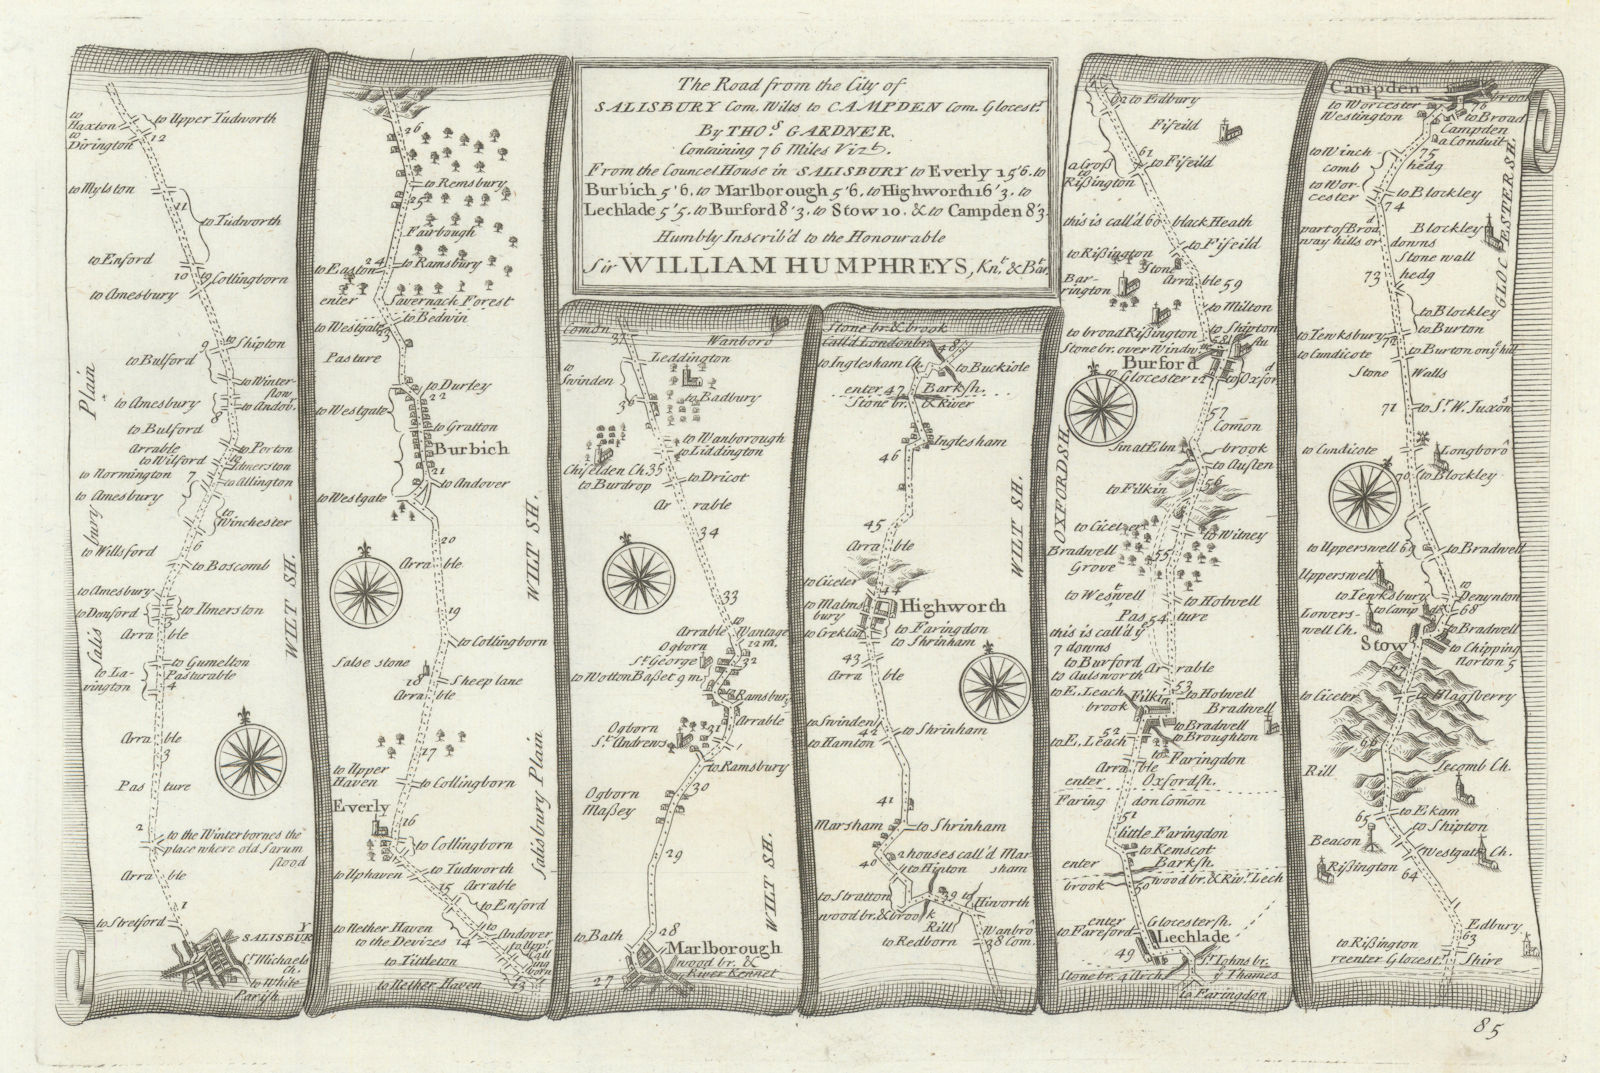 The Road from the City of
SALISBURY Com. Wilts to CAMPDEN Com. Glocestr.
By THOs. GARDNER.
Containing 76 Miles Vizt.
From the Councel House in SALISBURY to Everly 15'6. to
Burbich 5'6. to Marlborough 5'6. to Highworth 16'3. to
Lechlade 5'5. to Burford 8'3. to Stow 10. & to Campden 8'3.
Humbly Inscrib'd to the Honourable
Sir WILLIAM HUMPHREYS, Knt. & Bart.
to Haxton
to Dirington
to Upper Tudworth
12
to Mylston
11
to Tudworth
to Enford
10
to Collingborn
to Amesbury
9
to Shipton
to Bulford
to Winter-
slow
to Amesbury
to Andov.
to Bulford
8
Arrable
to Wilford
to Porton
Idmerston
to Normington
7
to Allington
to Amesbury
to Winchester
6
to Willsford
to Boscomb
to Amesbury
to Denford
5
to Ilmerston
Arra ble
to La-
vington
to Gumelton
Pasturable
4
Arra ble
3
Pas ture
2
to the Winterbornes the
place where old Sarum
stood
Arra ble
1
to Stretford
SALISBURY
St. Michaels
Ch.
to White
Parish
Salis bury Plain
WILT SH.
26
to Remsbury
25
Fairbough
to Easton
24
to Ramsbury
enter
Savernack Forest
to Bedwin
to Westgate
23
Pasture
to Durley
22
to Westgate
to Gratton
Burbich
21
to Westgate
to Andover
20
Arra ble
19
to Collingborn
Salse stone
18
Sheep lane
Arra ble
17
to Upper
Haven
to Collingborn
Everly
16
to Collingborn
to Uphaven
to Tudworth
15
Arrable
to Enford
to Nether Haven
to the Devizes
14
to
Andover
to Uppr.
Coll
ing
born
to Tittleton
to Nether Haven
13
WILT SH.
Salisbury Plain
Comon
37
Wanboro
Leddington
to
Swinden
36
to Badbury
to Wanborough
to Liddington
Chiselden Ch.
35
to Burdrop
to Dricot
Ar rable
34
33
Arrable
to
Wantage
12 m.
Ogborn
St. George
32
to Wotton Basset 9 m.
Ramsbury
Arrable
Ogborn
St. Andrews
31
to Ramsbury
30
Ogborn
Massey
29
to Bath
28
Marlborough
wood br. &
River Kennet
27
WILT SH.
Stone br. & brook
Call'd London br.
48
to Inglesham Ch.
to Buckiote
enter 47 Barksh.
Stone br. & River
Inglesham
46
45
Arra ble
to Ciceter
44
Highworth
to Malms
bury
to Creklad
to Faringdon
to Shrinham
43
Arra ble
to Swinden
42
to Hamton
to Shrinham
41
Marsham
to Shrinham
40
2 houses call'd Mar
sham
to Hinton
to Stratton
39
to
Hiworth
wood br. & brook
Rill
to Redborn
Wanbro
38 Com.
WILT SH.
62
to Edbury
Fifeild
a Gross
to Rissington
61
to Fifeild
this is call'd 60 black Heath
to Rissington
to Fifeild
Stone
Bar-
rington
Arra ble 59
to Milton
to broad Rissington
to Shipton
Stone br. over Windrush
58
Burford
to Glocester 12
to Oxford
57
Comon
brook
to Austen
56
to Filkin
to Ciceter
to Witney
Bradwell
Grove
55
to Weswell
to Holwell
Pas 54 ture
this is call'd ye
7 downs
to Burford
to Aulsworth
Ar rable
53
to E. Leach
brook
Filkin
to Holwell
Bradwell
to Bradwell
to Broughton
52
to E. Leach
to Faringdon
Arra ble
enter Oxfordsh.
Faring don Comon
51
little Faringdon
to Kemscot
enter Barksh.
brook
50
wood br. & Rivr. Lech
enter Glocestersh.
to Fareford
Lechlade
49
St. Johns br.
Stone br. 4 Arch
ye Thames
to Faringdon
OXFORDSH.
Campden
brook
to Worcester
Westington
76
to Broad
Campden
a Conduit
to Winch
comb
75
hedg
to Wor-
cester
to Blockley
74
part of Broad
way hills or downs
Blockley
Stone wall
73
hedg
to Blockley
to Tewksbury
to Burton
72
to Cundicote
to Burton on ye hill
Stone Walls
71
to Sr. W. Juxons
to Cundicote
Longboro
70
to Blockley
to Upperswell 69
to Bradwell
Upperswell
to
Denynton
to Tewksbury
68
to Camp
Lowers-
well Ch.
to Bradwell
Stow
to Chipping
Norton 5
67
to Ciceter
to Magsberry
66
Rill
Jecomb Ch.
to Ekam
65
to Shipton
Beacon
Westgate Ch.
Rissington
64
Edbury
63
to Rissington
reenter Glocest. Shire
GLOCESTERSH.
85